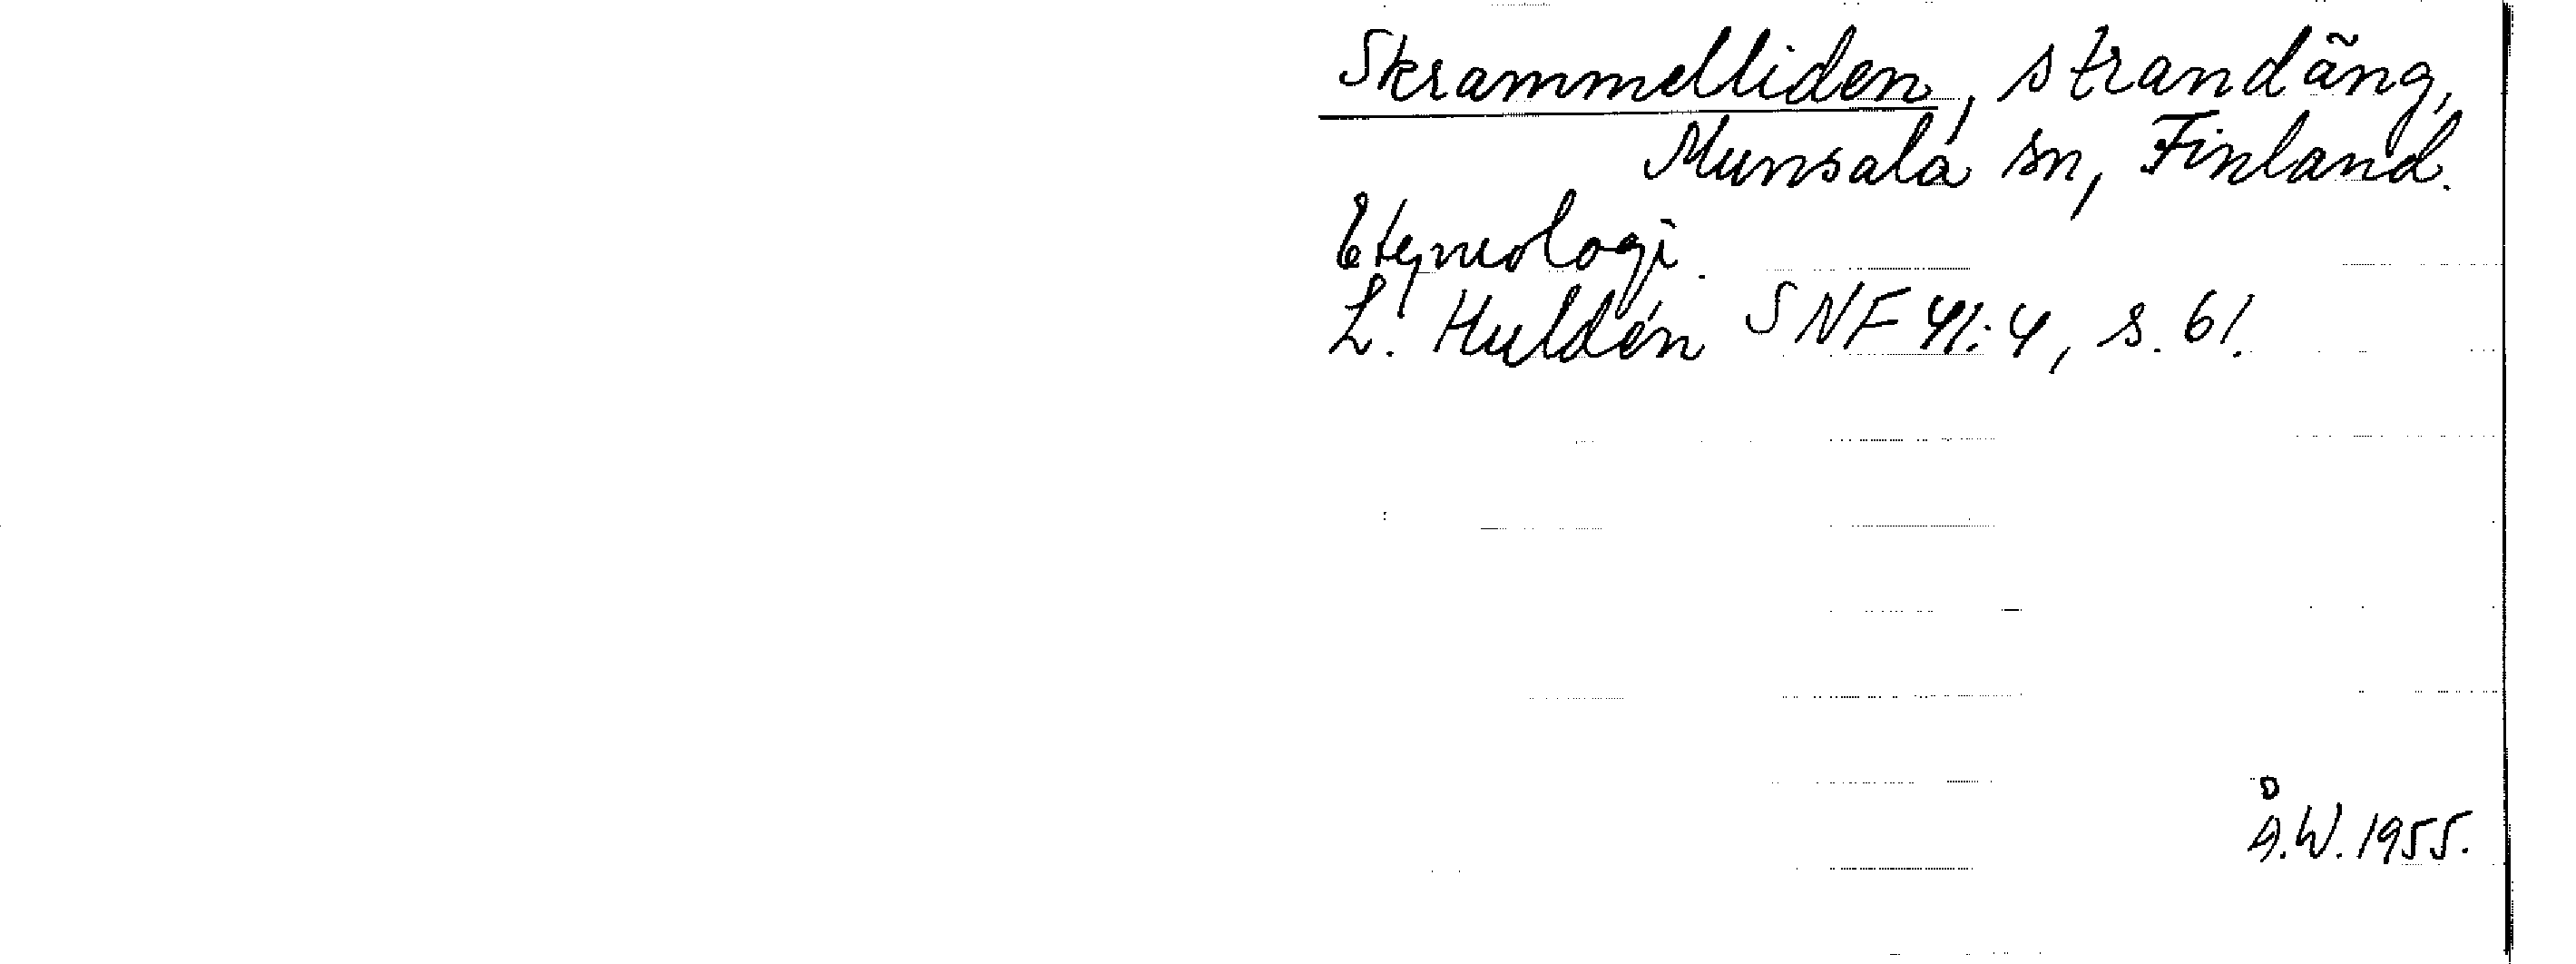 Skrammelliden, strandäng,
Munsala sn, Finland.
Etymologi.
L. Huldén SNF 41:4, s. 61.
Å.W. 1955.